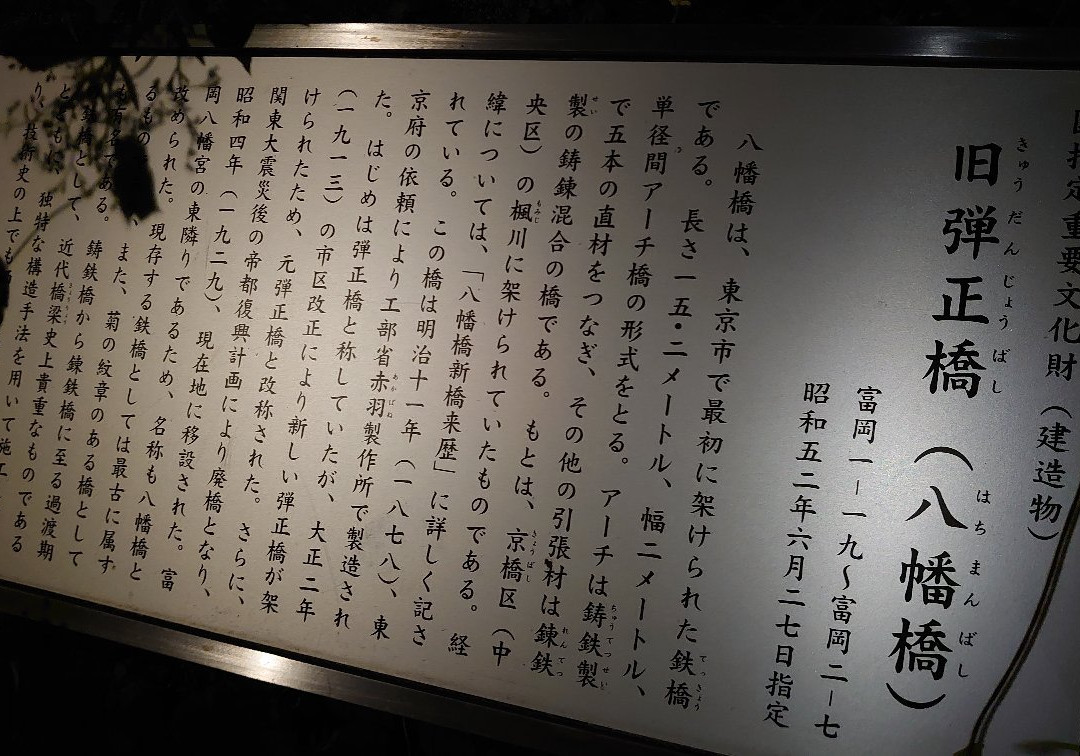 指定重要文化財（建造物）
旧弾正橋（八幡橋）
きゅうだんじょうばし はちまんばし
富岡一－一九～富岡二－七
昭和五二年六月二七日指定
八幡橋は、東京市で最初に架けられた鉄橋
てっきょう
である。長さ一五・二メートル、幅二メートル、
単径間アーチ橋の形式をとる。アーチは鋳鉄製
ちゅうてつせい
で五本の直材をつなぎ、その他の引張材は錬鉄
れんてつ
製の鋳錬混合の橋である。もとは、京橋区（中
せい きょうばし
央区）の楓川に架けられていたものである。経
もみじ
緯については、「八幡橋新橋来歴」に詳しく記さ
れている。この橋は明治十一年（一八七八）、東
京府の依頼により工部省赤羽製作所で製造され
あかばね
た。はじめは弾正橋と称していたが、大正二年
（一九一三）の市区改正により新しい弾正橋が架
けられたため、元弾正橋と改称された。さらに、
関東大震災後の帝都復興計画により廃橋となり、
昭和四年（一九二九）、現在地に移設された。富
岡八幡宮の東隣りであるため、名称も八幡橋と
改められた。現存する鉄橋としては最古に属す
るもの、また、菊の紋章のある橋として
も有名である。鋳鉄橋から錬鉄橋に至る過渡期
鉄橋として、近代橋梁史上貴重なものである
きょうりょう
とともに、独特な構造手法を用いて施工
り、技術史の上でも